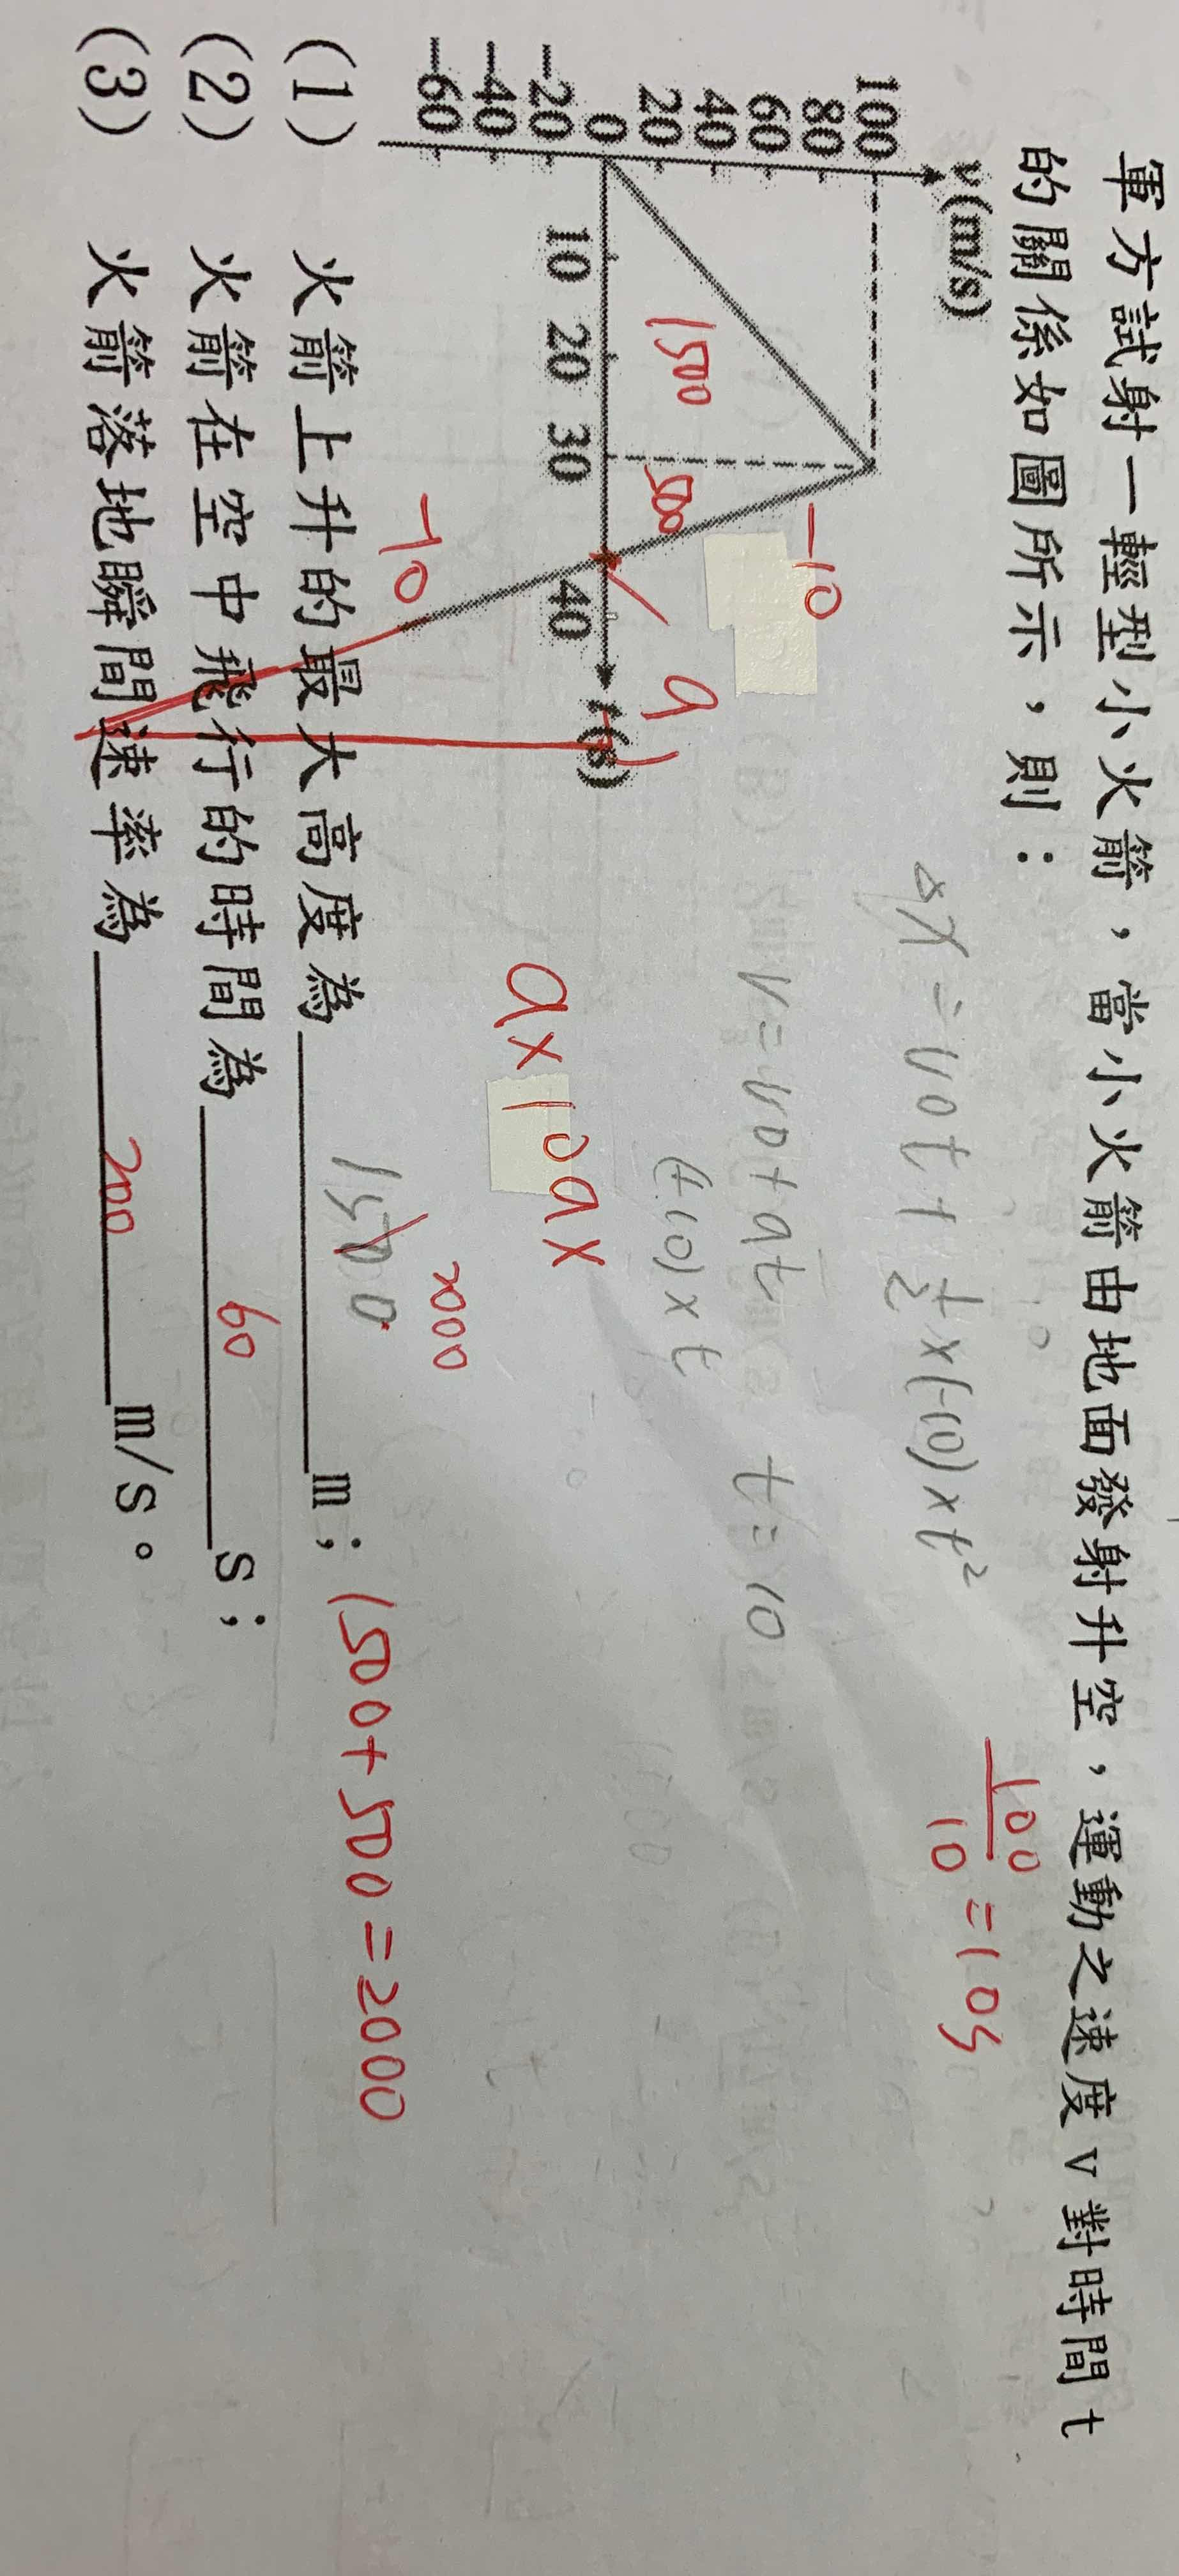 軍方試射一輕型小火箭，當小火箭由地面發射升空，運動之速度v對時間t
的關係如圖所示，則：
v(m/s)
100
80
60
40
20
0
-20
-40
-60
10 20 30 40 t(s)
1500
500
-10
-10
a
△x = v0t + 1/2 x(-10)xt²
v=v0+at t=10
(-10)xt
100/10 = 10s
ax10ax
2000
(1) 火箭上升的最大高度為 1500 m； 1500+500=2000
(2) 火箭在空中飛行的時間為 60 s；
(3) 火箭落地瞬間速率為 200 m/s。